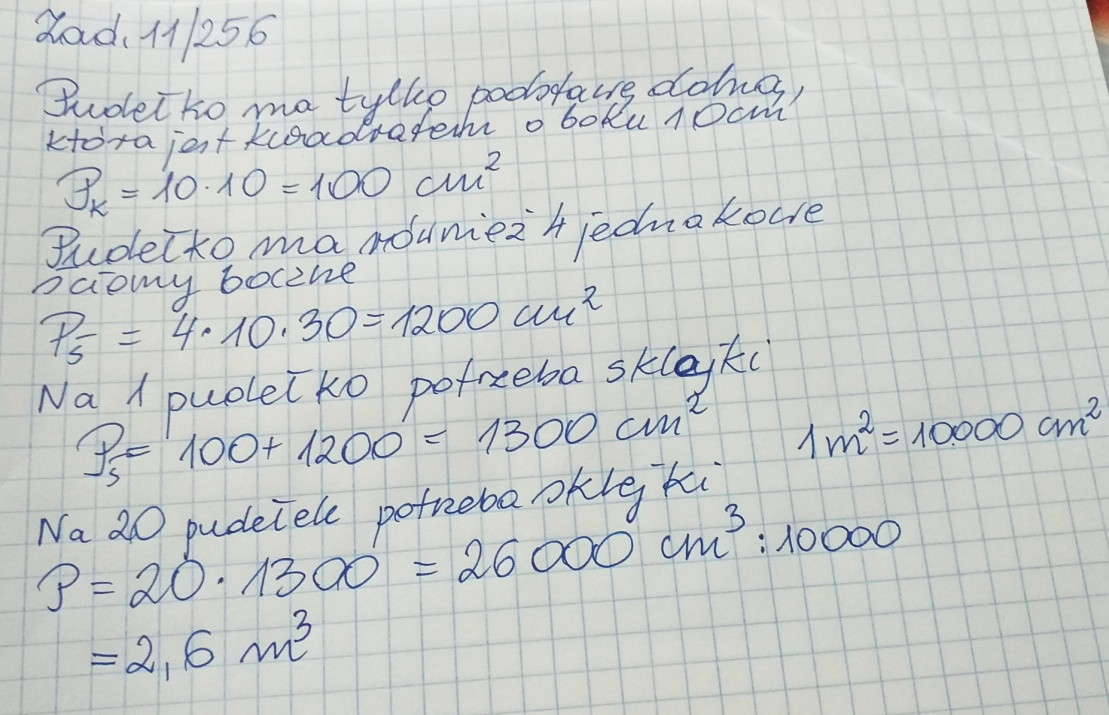 Zad. 11/256
Pudełko ma tylko podstawę dolną,
która jest kwadratem o boku 10cm
Pₖ = 10·10 = 100 cm²
Pudełko ma również 4 jednakowe
ściany boczne
Pś = 4·10·30 = 1200 cm²
Na 1 pudełko potrzeba sklejki
Pś = 100 + 1200 = 1300 cm² 1m² = 10000 cm²
Na 20 pudełek potrzeba sklejki
P = 20·1300 = 26000 cm³ : 10000
= 2,6 m³